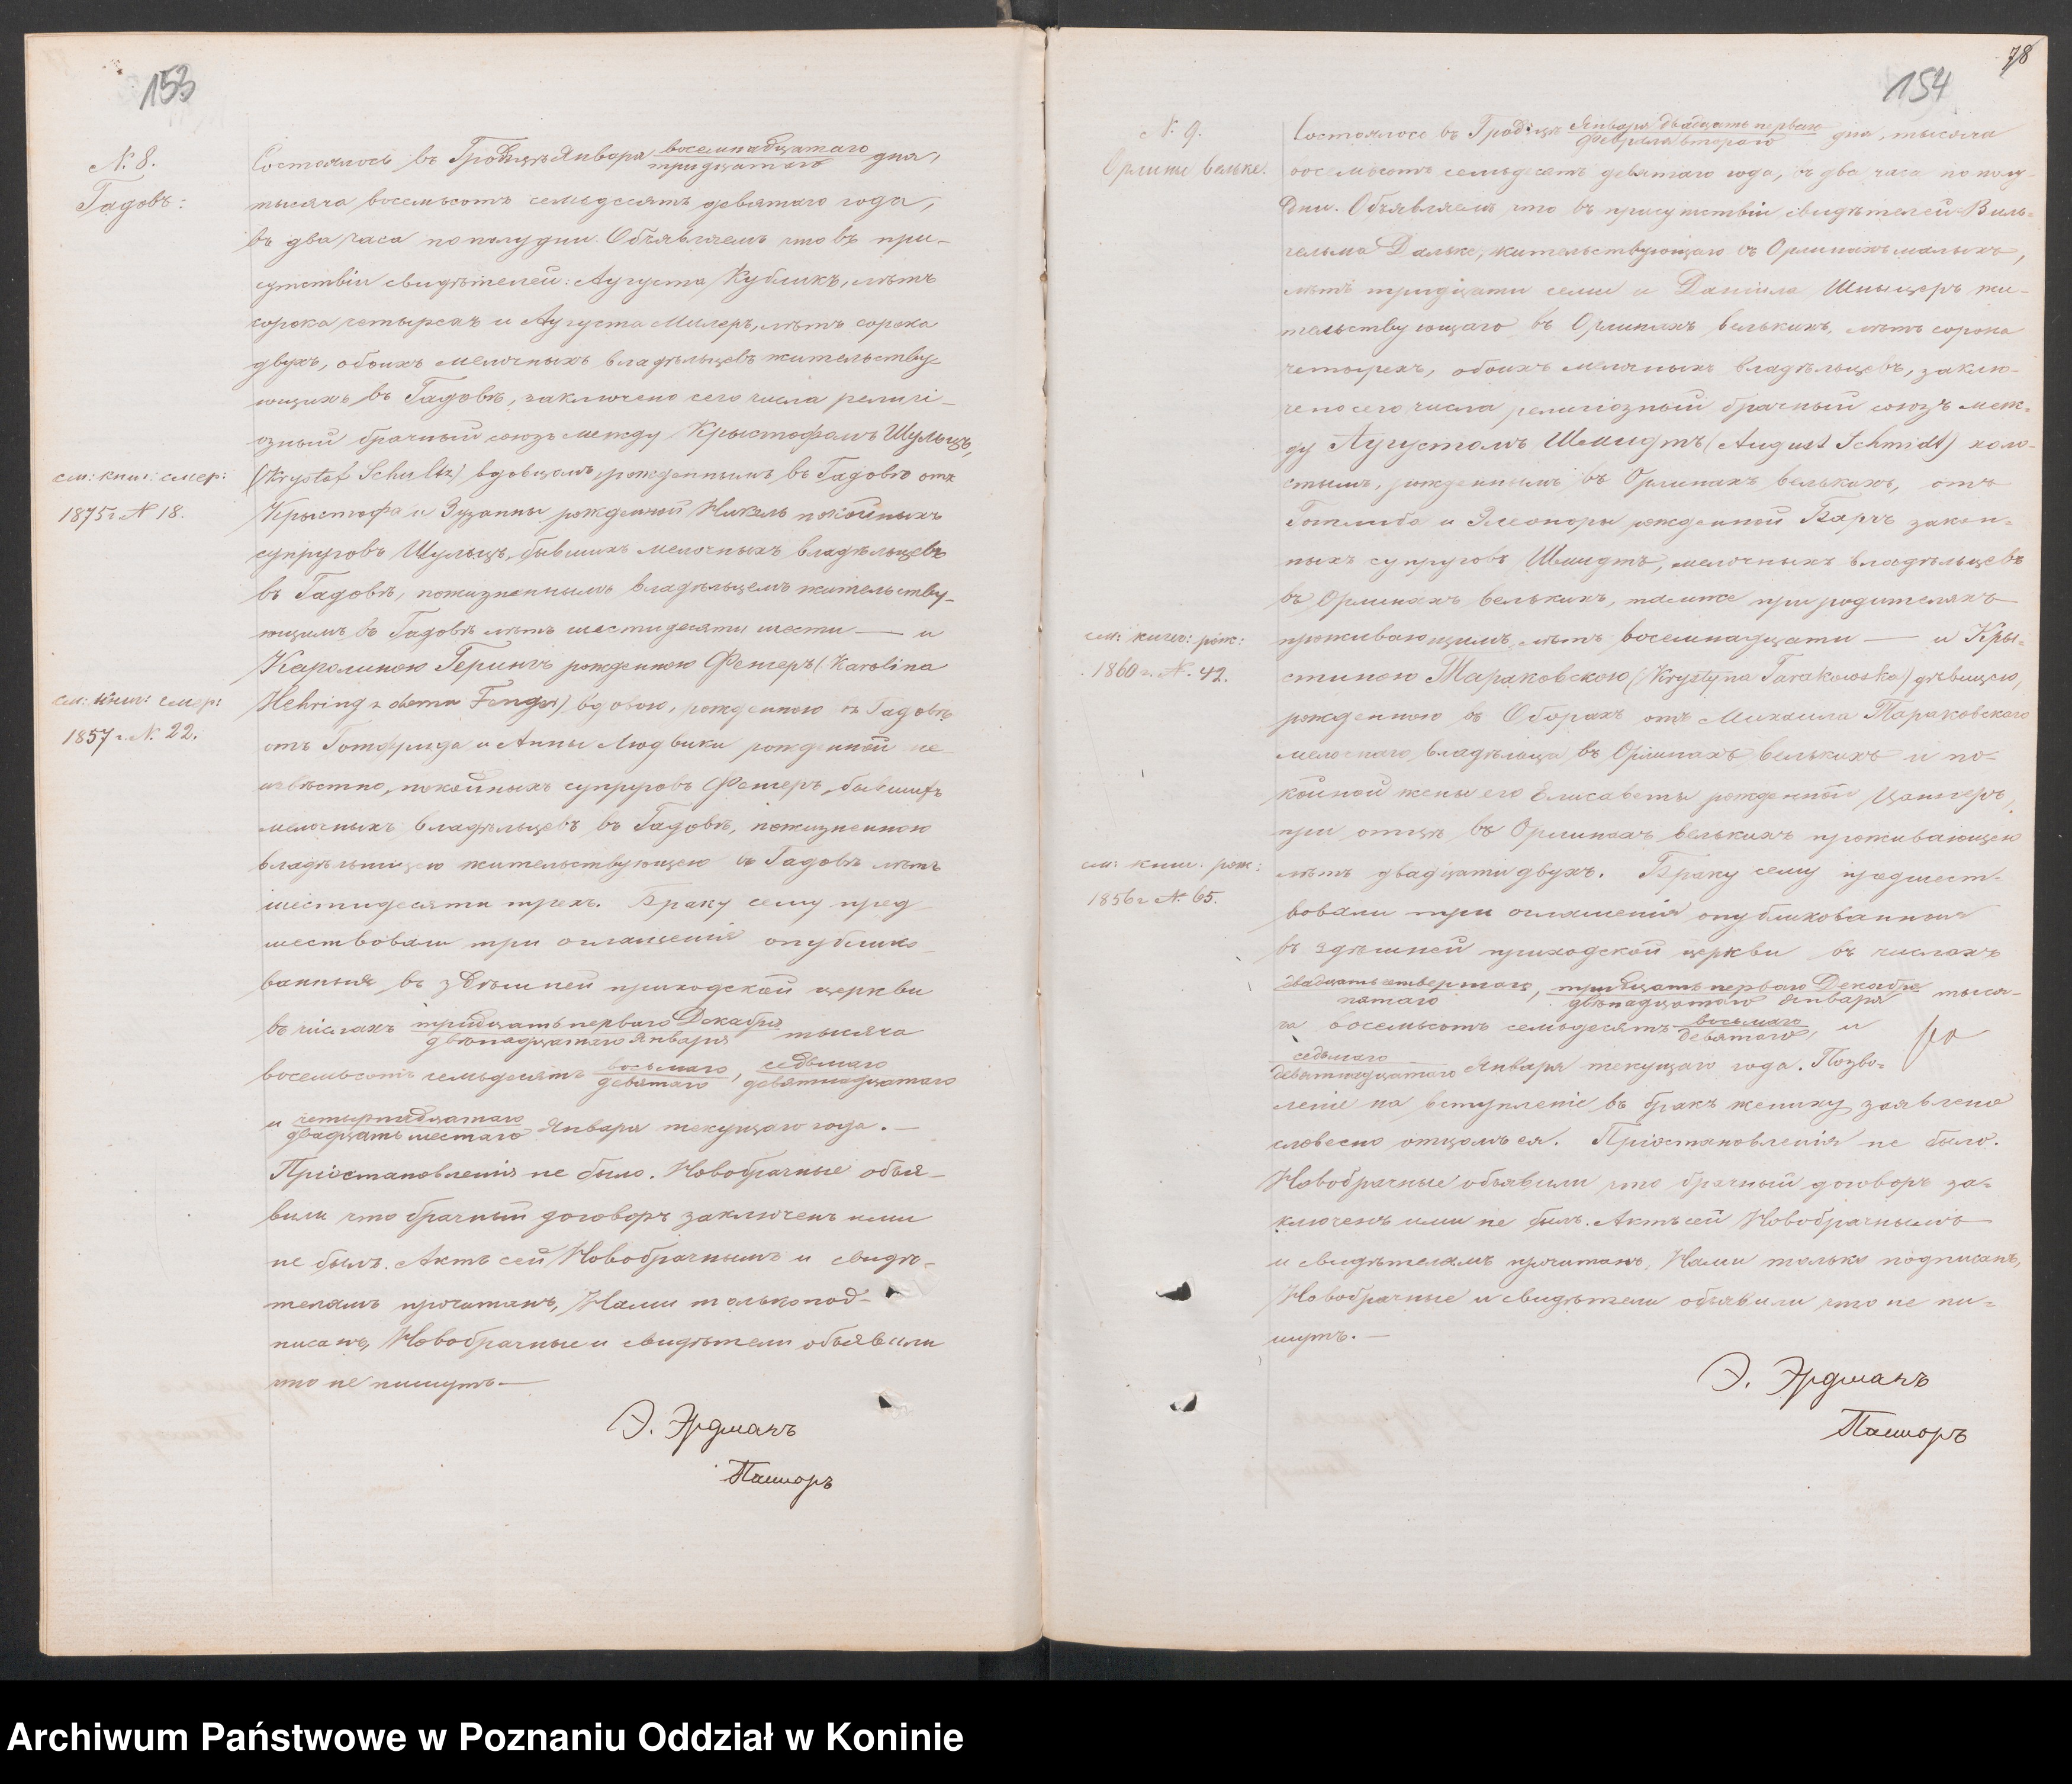 153
№ 8.
Гадовъ:
Состоялось въ Гродзцѣ Января восемнадцатаго / тридцатаго дня,
тысяча восемьсотъ семьдесятъ девятаго года,
въ два часа пополудни. Объявляемъ что въ при-
сутствіи свидѣтелей: Августа Кубликъ, лѣтъ
сорока четырехъ и Августа Милеръ, лѣтъ сорока
двухъ, обоихъ мелочныхъ владѣльцевъ жительству-
ющихъ въ Гадовѣ, заключено сего числа религі-
озный брачный союзъ между Крыстофомъ Шульцъ,
см: книг: смер:
1875 г. № 18.
(Krystof Schultz) вдовцомъ, рожденнымъ въ Гадовѣ отъ
Крыстофа и Зузанны рожденной Никель покойныхъ
супруговъ Шульцъ, бывшихъ мелочныхъ владѣльцевъ
въ Гадовѣ, пожизненнымъ владѣльцемъ жительству-
ющимъ въ Гадовѣ лѣтъ шестидесяти шести — и
Каролиною Герингъ рожденною Фенгеръ (Karolina
см: книг: смер:
1857 г. № 22.
Hehring z domu Fenger) вдовою, рожденною въ Гадовѣ
отъ Готфрида и Анны Людвики рожденной не-
извѣстно, покойныхъ супруговъ Фенгеръ, бывшихъ
мелочныхъ владѣльцевъ въ Гадовѣ, пожизненною
владѣльницею жительствующею въ Гадовѣ лѣтъ
шестидесяти трехъ. Браку сему пред-
шествовали три оглашенія опублико-
ванныя въ здѣшней приходской церкви
въ числахъ тридцать перваго Декабря / двѣнадцатаго Января тысяча
восемьсотъ семьдесятъ восьмаго / девятаго, седьмаго / девятнадцатаго
и четырнадцатаго / двадцать шестаго Января текущаго года. —
Пріостановленія не было. Новобрачные объя-
вили что брачный договоръ заключенъ ими
не былъ. Актъ сей Новобрачнымъ и свидѣ-
телямъ прочитанъ, Нами только под-
писанъ, Новобрачные и свидѣтели объявили
что не пишутъ —
Э. Эрдманъ
Пасторъ
78
154
№ 9.
Орлины велькe.
Состоялось въ Гродзцѣ Января двадцать перваго / Февраля втораго дня, тысяча
восемьсотъ семьдесятъ девятаго года, въ два часа пополу-
дни. Объявляемъ что въ присутствіи свидѣтелей Виль-
гельма Дальке, жительствующаго въ Орлинахъ малыхъ,
лѣтъ тридцати семи и Даніила Шпицеръ жи-
тельствующаго въ Орлинахъ велькихъ, лѣтъ сорока
четырехъ, обоихъ мелочныхъ владѣльцевъ, заклю-
чено сего числа религіозный брачный союзъ меж-
ду Августомъ Шмидтъ (August Schmidt) холо-
стымъ, рожденнымъ въ Орлинахъ велькихъ, отъ
Готлиба и Элеоноры рожденной Барчъ закон-
ныхъ супруговъ Шмидтъ, мелочныхъ владѣльцевъ
въ Орлинахъ велькихъ, тамже при родителяхъ
см: книг: рож:
1860 г. № 42.
проживающимъ, лѣтъ восемнадцати — и Кры-
стиною Тараковскою (Krystyna Tarakowska) дѣвицею,
рожденною въ Оборахъ отъ Михаила Тараковскаго
мелочнаго владѣльца въ Орлинахъ велькихъ и по-
койной жены его Елисаветы рожденной Цангеръ,
при отцѣ въ Орлинахъ велькихъ проживающею
см: книг: рож:
1856 г. № 65.
лѣтъ двадцати двухъ. Браку сему предшест-
вовали три оглашенія опубликованныя
въ здѣшней приходской церкви въ числахъ
двадцать четвертаго / пятаго, тридцать перваго Декабря / двѣнадцатаго Января тыся-
ча восемьсотъ семьдесятъ восьмаго / девятаго, и
седьмаго / девятнадцатаго Января текущаго года. Позво-
леніе на вступленіе въ бракъ жениху заявлено
словесно отцомъ ея. Пріостановленія не было.
Новобрачные объявили что брачный договоръ за-
ключенъ ими не былъ. Актъ сей Новобрачнымъ
и свидѣтелямъ прочитанъ, Нами только подписанъ,
Новобрачные и свидѣтели объявили что не пи-
шутъ. —
Э. Эрдманъ
Пасторъ
Archiwum Państwowe w Poznaniu Oddział w Koninie